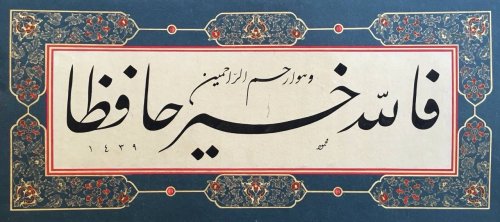 فالله خير حافظا
وهو ارحم الراحمين
١٤٣٩